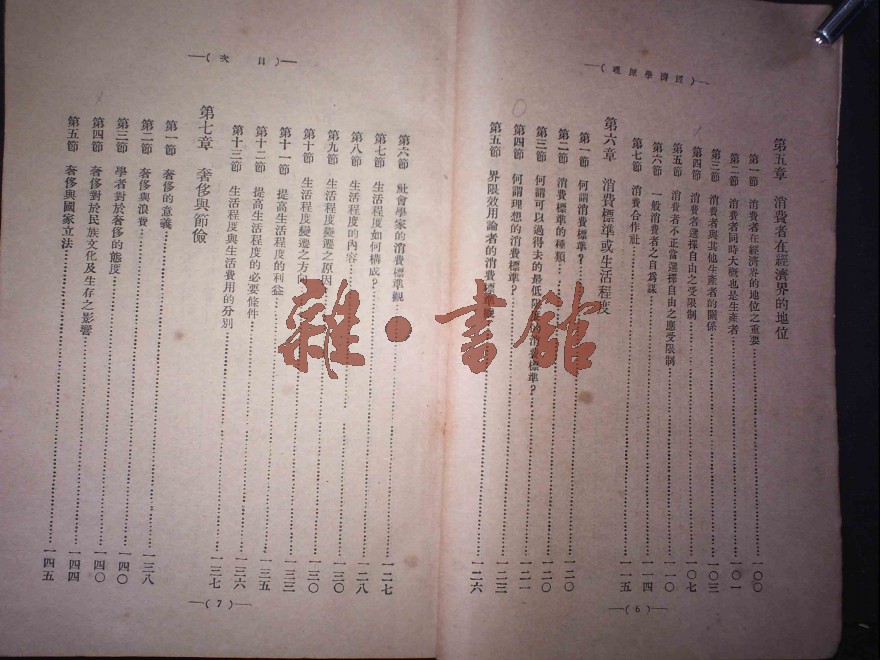 —(經濟學原理)—
第五章 消費者在經濟界的地位
第一節 消費者在經濟界的地位之重要……一〇〇
第二節 消費者同時大概也是生產者……一〇一
第三節 消費者與其他生產者的關係……一〇三
第四節 消費者選擇自由之受限制……一〇七
第五節 消費者不正當選擇自由之應受限制……一一〇
第六節 一般消費者之自爲謀……一一四
第七節 消費合作社……一一五
第六章 消費標準或生活程度
第一節 何謂消費標準?……一二〇
第二節 消費標準的種類……一二〇
第三節 何謂可以過得去的最低限度的消費標準?……一二一
第四節 何謂理想的消費標準?……一二三
第五節 界限效用論者的消費標準觀……一二六
—(6)—
—(目次)—
第六節 社會學家的消費標準觀……一二七
第七節 生活程度如何構成?……一二八
第八節 生活程度的內容……一三〇
第九節 生活程度變遷之原因……一三〇
第十節 生活程度變遷之方向……一三三
第十一節 提高生活程度的利益……一三五
第十二節 提高生活程度的必要條件……一三六
第十三節 生活程度與生活費用的分別……一三七
第七章 奢侈與節儉
第一節 奢侈的意義……一三八
第二節 奢侈與浪費……一四〇
第三節 學者對於奢侈的態度……一四〇
第四節 奢侈對於民族文化及生存之影響……一四四
第五節 奢侈與國家立法……一四五
—(7)—
雜·書館